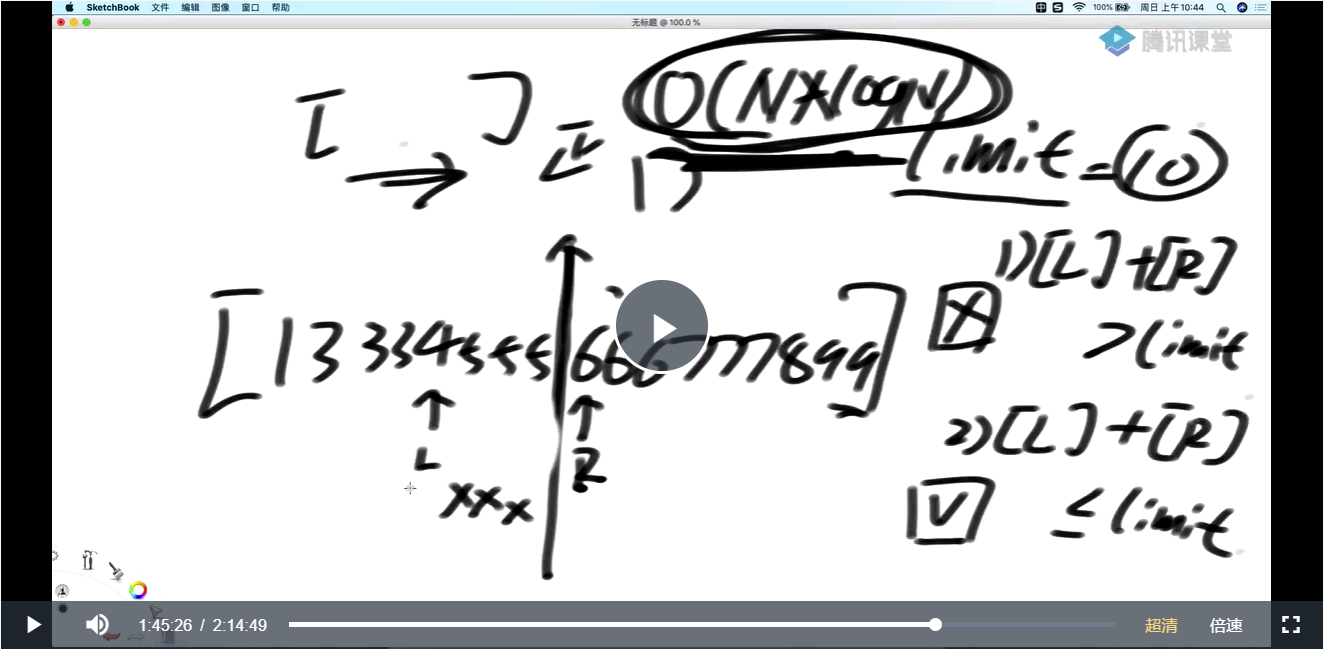 SketchBook 文件 编辑 图像 窗口 帮助 100% 周日 上午10:44
无标题 @ 100.0 %
腾讯课堂
[ ] O(N*logN)
limit = 10
1) [L] + [R]
> limit
[1 3 3 3 4 5 5 5 6 6 6 7 7 7 8 9 9]
L R
x x x
2) [L] + [R]
≤ limit
1:45:26 / 2:14:49 超清 倍速